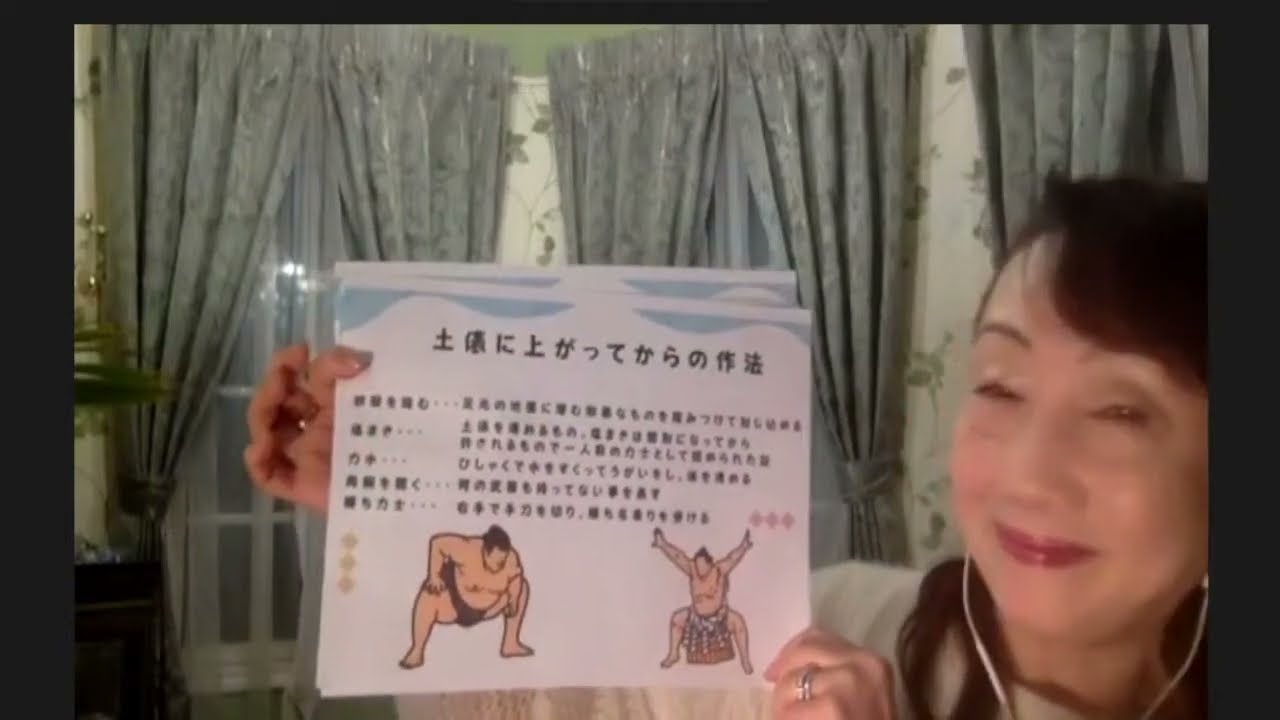 土俵に上がってからの作法
四股を踏む・・・足元の地面に潜む邪悪なものを踏みつけて封じ込める
塩まき・・・ 土俵を清めるもの、塩まきは関取になってから
許されるもので一人前の力士として認められた証
力水・・・ ひしゃくで水をすくってうがいをし、体を清める
両腕を開く・・・何の武器も持ってない事を表す
勝ち力士・・・ 右手で手刀を切り、勝ち名乗りを受ける